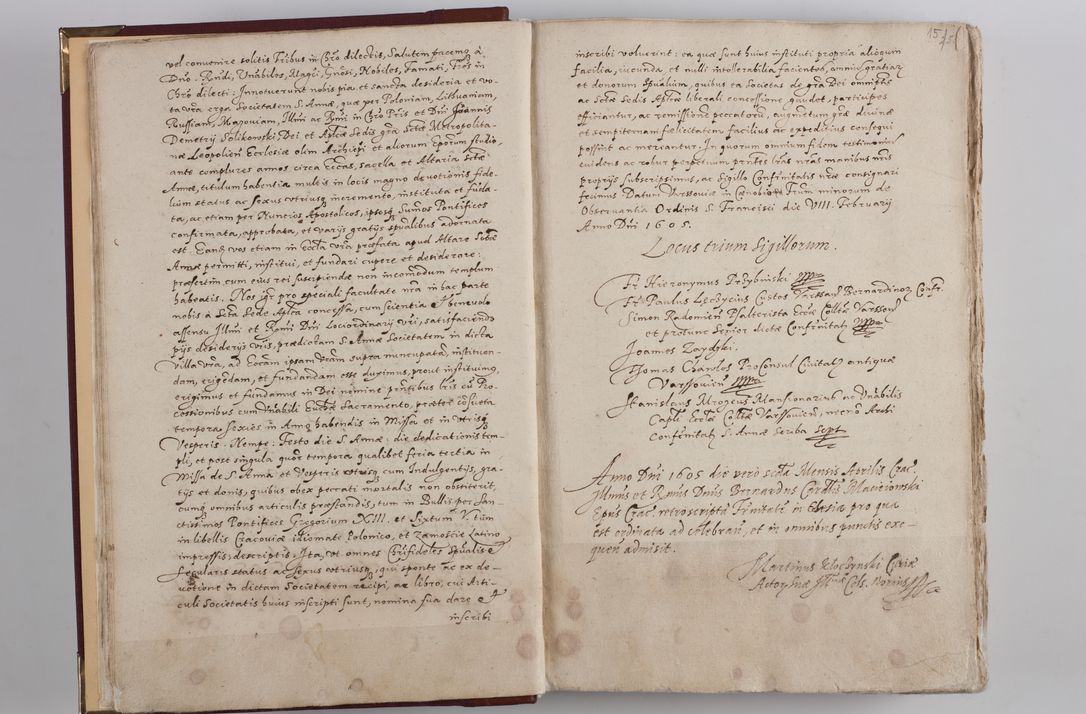 vel convenire solitis Fribus in Chro dilectis, Salutem pacemq à
Dno. Rndi, Vnabiles, Magci, Gnosi, Nobiles, Famati, Fres in
Chro dilecti: Innotuerunt nobis pia et sancta desideria et vo-
ta vra erga Societatem S. Annæ, quæ per Poloniam, Lithuaniam,
Russiam, Mazoviam, Illmi ac Rmi in Chro Pris et Dni Joannis
Demetrij Solikowski Dei et Aplicæ Sedis gra Sctæ Metropolita-
næ Leopolien Ecclesiæ olim Archiepi et aliorum Eporum studio,
ante complures annos circa Eccas, sacella et Altaria Sctæ
Annæ, titulum habentia multis in locis magno devotionis fide-
lium status ac sexus utriusq incremento, instituta et funda-
ta, ac etiam per Nuncios Apostolicos, ipsosq Sumos Pontifices
confirmata, approbata, et varijs gratijs spualibus adornata
est. Eandem vos etiam in Eccla vra præfata apud Altare Sctæ
Annæ permitti, institui, et fundari cupere et desiderare:
præsertim cum eius rei suscipiendæ non incomodum templum
habeatis. Nos igr pro speciali facultate nra in hac parte
nobis à Scta Sede Aplica concessa, cum scientia et benevolo
assensu Illmi et Rmi Dni Lociordinarij vri, satisfaciendo
pijs desiderijs vris, prædictam S. Annæ Societatem in dicta
Villa vra, ad Eccam ipsam vram supra nuncupata, instituen-
dam, erigendam, et fundandam esse duximus, prout instituimus,
erigimus et fundamus in Dei nomine pntibus lris cu Pro-
cessionibus cum Vnabili Euchæ Sacramento, præter consueta
tempora sexies in Anno habendis in Missa et in utrisq
Vesperis. Nempe: Festo die S. Annæ: die dedicationis tem-
pli, et post singula quatuor tempora qualibet feria tertia in
Missa de S. Anna et Vesperis utrisq cum Indulgentijs, gra-
tijs et donis, quibus obex peccati mortalis non obstiterit,
cumq omnibus articulis præstandis, tum in Bullis per San-
ctissimos Pontifices Gregorium XIII. et Sixtum V. tum
in libellis Cracoviæ idiomate Polonico, et Zamoscie Latino
impressis, descriptis: Ita, ut omnes Chrifideles spualis et
secularis status ac sexus utriusq, qui sponte ac ex de-
votione in dictam Societatem recipi, ac libro, cui Arti-
culi Societatis huius inscripti sunt, nomina sua dare et
inscribi
15
inscribi voluerint: ea quæ sunt huius instituti propria alioquin
facilia, iucunda, et nulli intollerabilia facientes, omniu gratiaru
et donorum spualium, quibus ea Societas de gra Dei omnipotis
ac Sctæ Sedis Aplicæ liberali concessione, gaudet, participes
efficiantur, ac remissionem peccatoru, augmentum græ divinæ
et sempiternam fælicitatem facilius ac expeditius consequi
possint ac mereantur. In quorum omnium fidem testimoniu
euidens ac robur perpetuum pntes lras nras manibus nris
proprijs subscripsimus, ac Sigillo Confrnitatis nræ consignari
fecimus Datum Varssoviæ in Cænobio Frum minorum de
Observantia Ordinis S. Francisci die VIII. Februarij
Anno Dni 1605.
Locus trium Sigillorum.
Fr. Hieronymus Przybinski mppa
Fr. Paulus Lectycius Custos Varssauien Bernardinorz Confr.
Simon Radomien Psalterista Eccæ Collitæ Varssouien
et protunc Senior dictæ Confrnitatis mppa
Joannes Zaydzki.
Thomas Charles ProConsul Civitatis antiquæ
Varssouien mppa
Stanislaus Mrogeus Mansionarius ac Vnabilis
Capli Ecclæ Collitæ Varssouien, necno Archi
Confrnitatis S. Annæ Scriba scpt
Anno Dni 1605 die vero scta Mensis Aprilis Crac.
Illmus et Rmus Dnus Bernardus Cardlis Macieiowski
Epus Crac. retroscripta Frnitati in Ecclesia pro qua
est ordinata ad celebran, et in omnibus punctis exe-
quen admisit.
Martinus Kloczynski Curiæ
Actorumq Illmæ Cels. Notarius